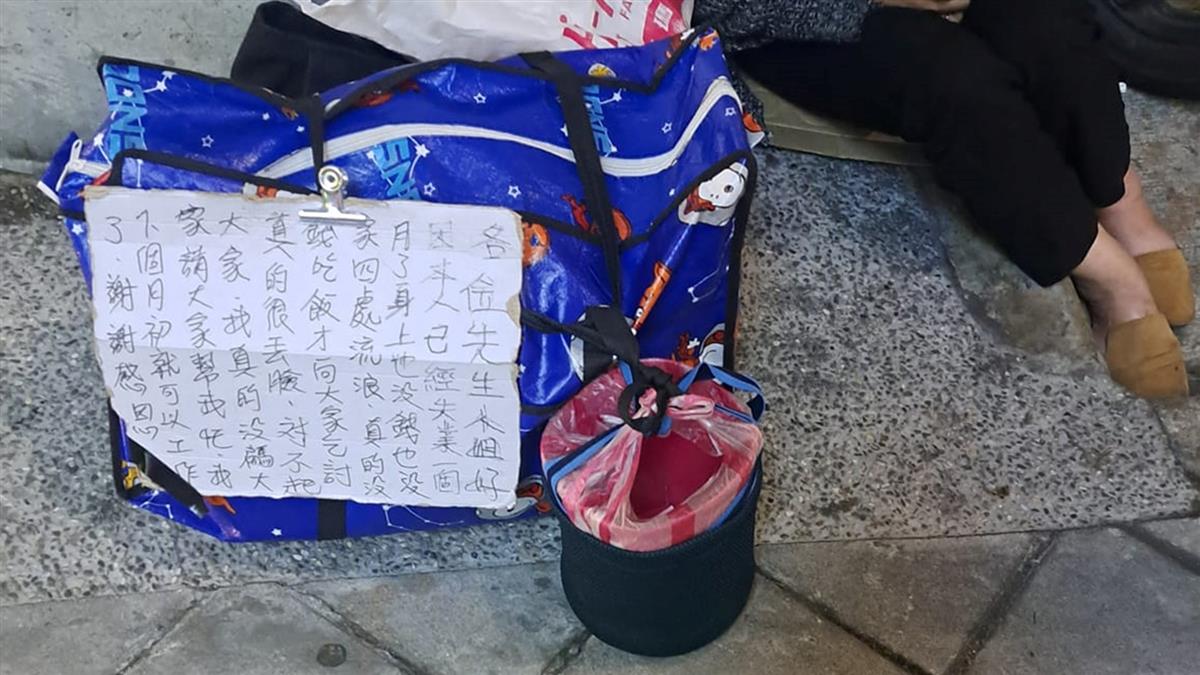 各位先生小姐好
因本人已經失業一個
月了身上也没錢也没
家四處流浪.真的没
錢吃飯才向大家乞討
真的很丟臉、对不起
大家.我真的没騙大
家請大家幫我忙.我
下個月初就可以工作
了.謝謝感恩